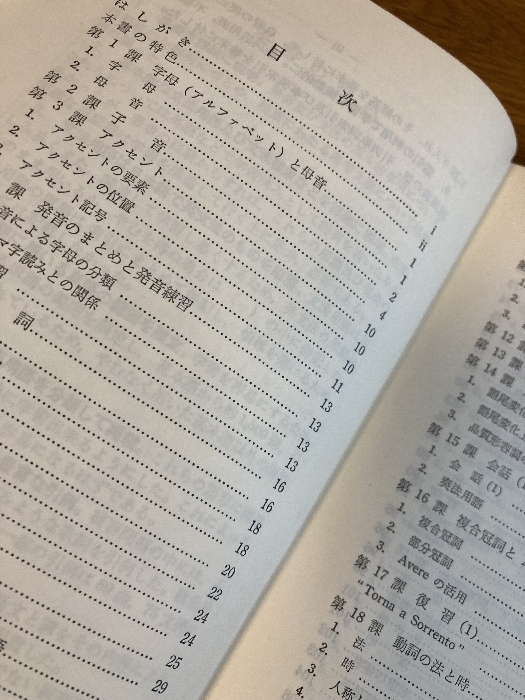 目次
はしがき……i
本書の特色……ii
第1課 字母（アルファベット）と母音……1
1. 字母……1
2. 母音……2
第2課 子音……4
第3課 アクセント……10
1. アクセントの要素……10
2. アクセントの位置……10
アクセント記号……11
課 発音のまとめと発音練習……13
音による字母の分類……13
マ字読みとの関係……13
習……13
詞……16
16
18
18
20
22
24
24
25
29
2.
3.
第12課
第13課
第14課
1. 語尾変
2. 語尾変化
3. 品質形容詞の
第15課 会話（I
1. 会話（I）
2. 奥法用語
第16課 複合冠詞と
1. 複合冠詞
2. 部分冠詞
3. Avere の活用
第17課 復習（I）
“Torna a Sorrento”
第18課 動詞の法と時
1. 法
2. 時
3. 人称
4.